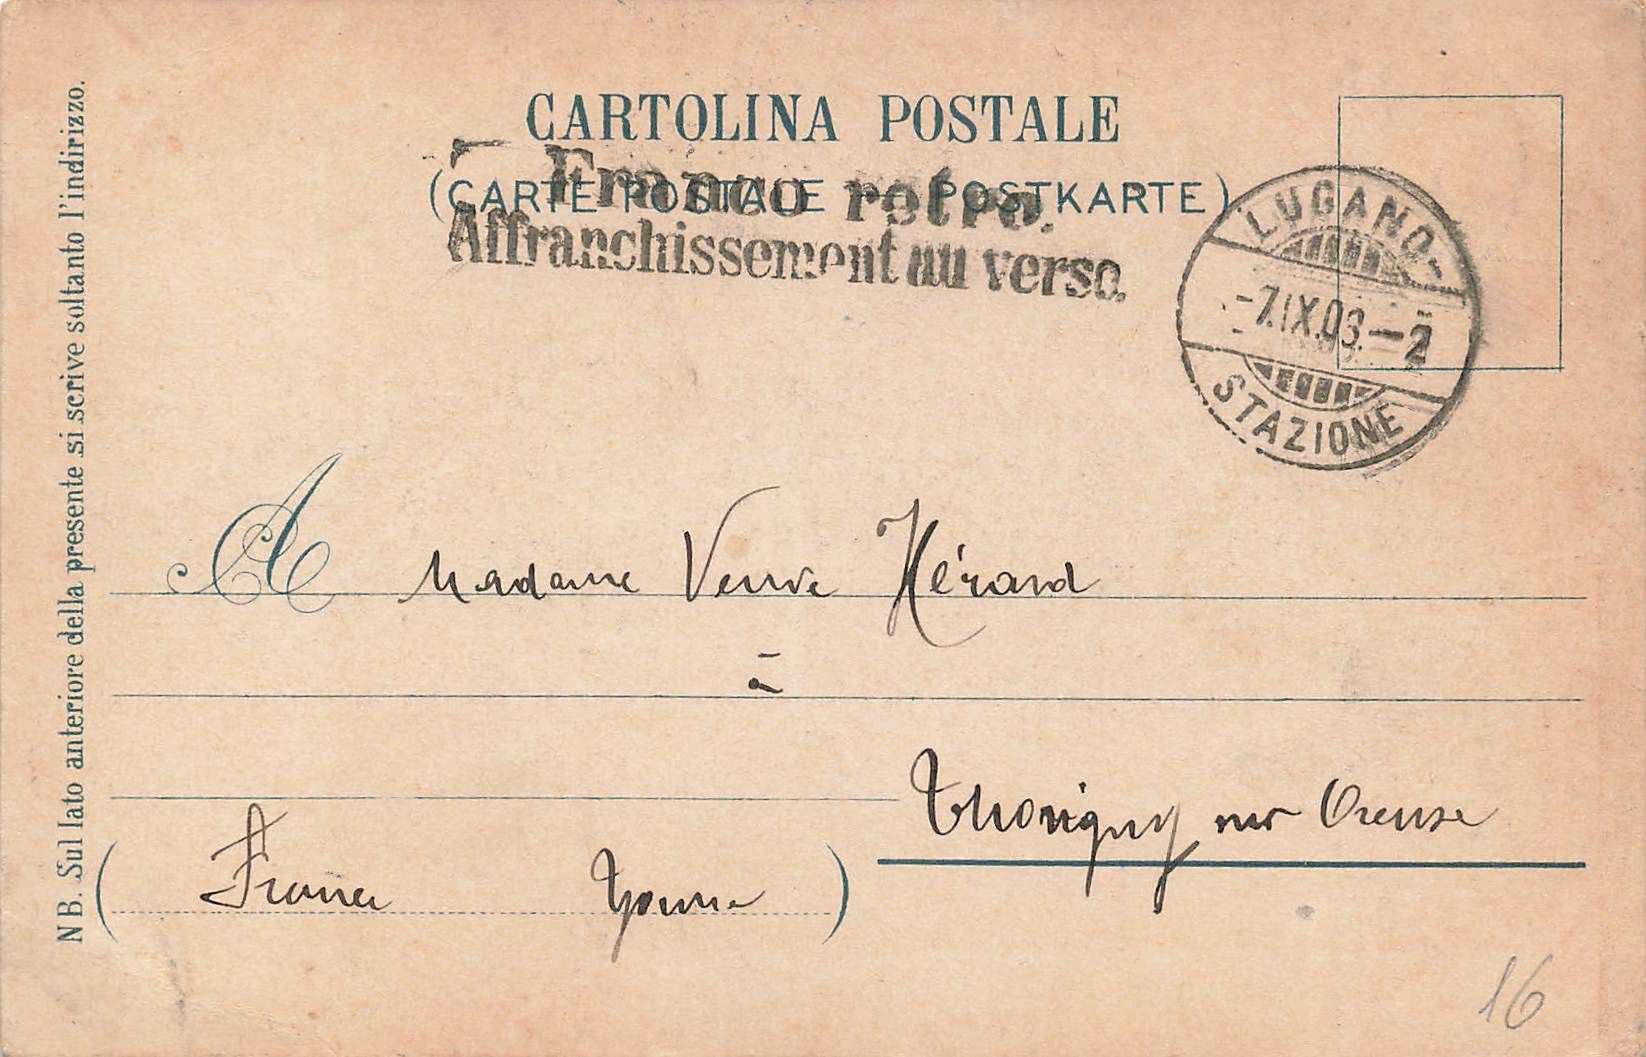 CARTOLINA POSTALE
(CARTE POSTALE - POSTKARTE)
Franco retro.
Affranchissement au verso.
LUGANO
-7.IX.03.-2
STAZIONE
NB. Sul lato anteriore della presente si scrive soltanto l'indirizzo.
A Madame Veuve Hérard
à
Thorigny sur Oreuse
(France Yonne)
16